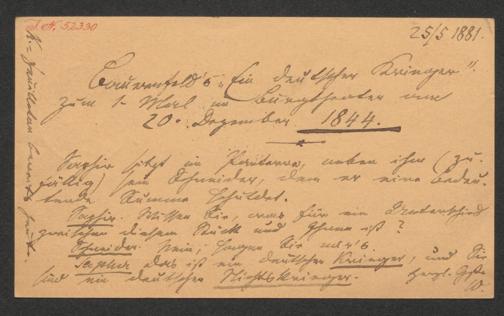 J. N. 52330
25/5 1881.
Bauernfeld's „Ein deutscher Krieger"
zum 1. Mal im Burgtheater am
20. Dezember 1844.
Saphir sitzt im Parterre, neben ihm (zu-
fällig) sein Schneider, dem er eine bedeu-
tende Summe schuldet.
Saphir. Wissen Sie, was für ein Unterschied
zwischen diesem Stück und Ihnen ist?
Schneider. Nein, sagen Sie mir's.
Saphir das ist ein deutscher Krieger, und Sie
sind ein deutscher Nichtskrieger.
W.